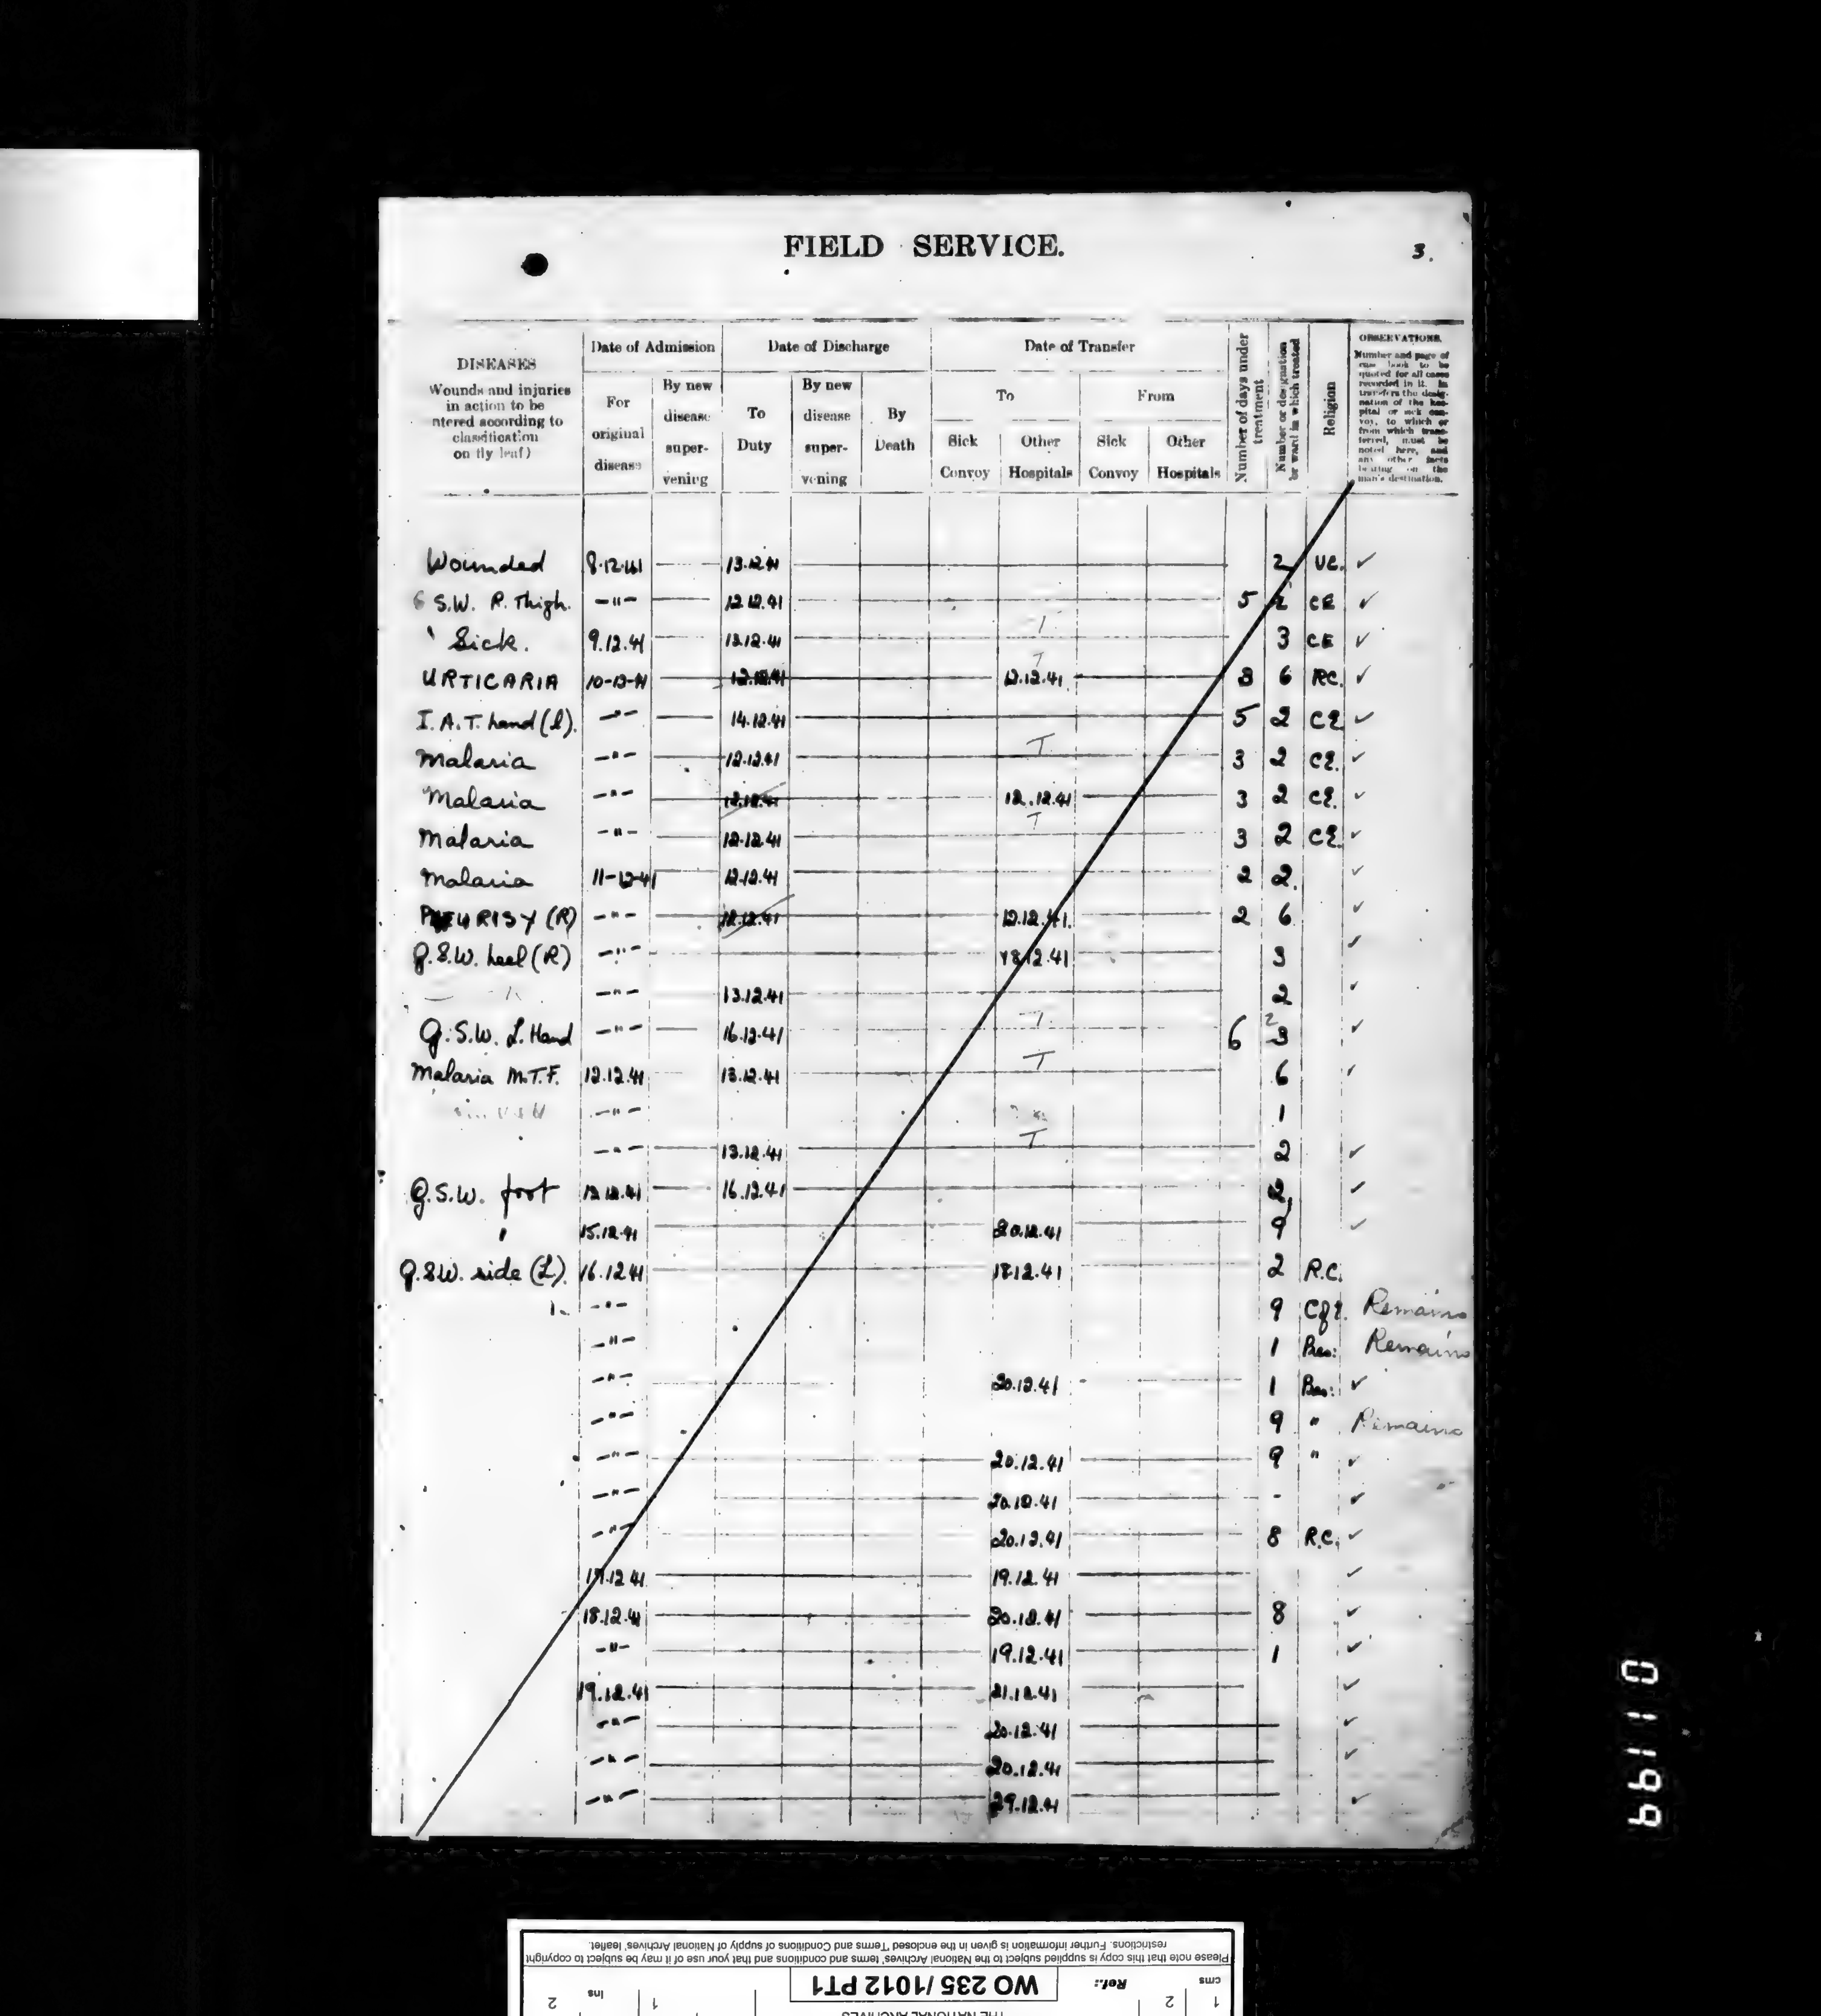 FIELD SERVICE.
3.
DISEASES
Wounds and injuries
in action to be
ntered according to
classification
on fly leaf)
Date of Admission
For
original
disease
By new
disease
super-
vening
Date of Discharge
To
Duty
By new
disease
super-
vening
By
Death
Date of Transfer
To
From
Sick
Convoy
Other
Hospitals
Sick
Convoy
Other
Hospitals
Number of days under
treatment
Number or designation
or ward in which treated
Religion
OBSERVATIONS.
Number and page of
case book to be
quoted for all cases
recorded in it. In
transfers the desig-
nation of the hos-
pital or sick con-
voy, to which or
from which trans-
ferred, must be
noted here, and
any other facts
bearing on the
man's destination.
Wounded 8.12.41 13.12.41 2 UC. ✓
S.W. R. Thigh. -"- 12.12.41 5 2 CE ✓
Sick. 9.12.41 12.12.41 T 3 CE ✓
URTICARIA 10-12-41 12.12.41 T 12.12.41 3 6 RC. ✓
I.A.T. hand (l). -"- 14.12.41 5 2 CE ✓
Malaria -"- 12.12.41 T 3 2 CE. ✓
Malaria -"- 12.12.41 12.12.41 3 2 CE. ✓
Malaria -"- 12.12.41 T 3 2 CE ✓
Malaria 11-12-41 12.12.41 2 2. ✓
PLEURISY (R) -"- 12.12.41 12.12.41. 2 6 ✓
G.S.W. heel (R) -"- 18.12.41 3 ✓
-"- 13.12.41 2 ✓
G.S.W. L. Hand -"- 16.12.41 T 6 2 3 ✓
Malaria M.T.F. 12.12.41 13.12.41 T 6 ✓
-"- 1
-"- 13.12.41 T 2 ✓
G.S.W. foot 12.12.41 16.12.41 2 ✓
15.12.41 20.12.41 9 ✓
G.S.W. side (L). 16.12.41 18.12.41 2 R.C.
-"- 9 CofE. Remains
-"- 1 Pres: Remains
-"- 20.12.41 1 Pres: ✓
-"- 9 " Remains
-"- 20.12.41 9 " ✓
-"- 20.12.41 - ✓
-"- 20.12.41 8 R.C. ✓
17.12.41 19.12.41 ✓
18.12.41 20.12.41 8 ✓
-"- 19.12.41 1 ✓
19.12.41 21.12.41 ✓
-"- 20.12.41 ✓
-"- 20.12.41 ✓
-"- 29.12.41 ✓
01199
Please note that this copy is supplied subject to the National Archives' terms and conditions and that your use of it may be subject to copyright
restrictions. Further information is given in the enclosed 'Terms and Conditions of supply of National Archives' leaflet.
cms 1 2 Ref.: WO 235/1012 PT1 1 ins 2
THE NATIONAL ARCHIVES